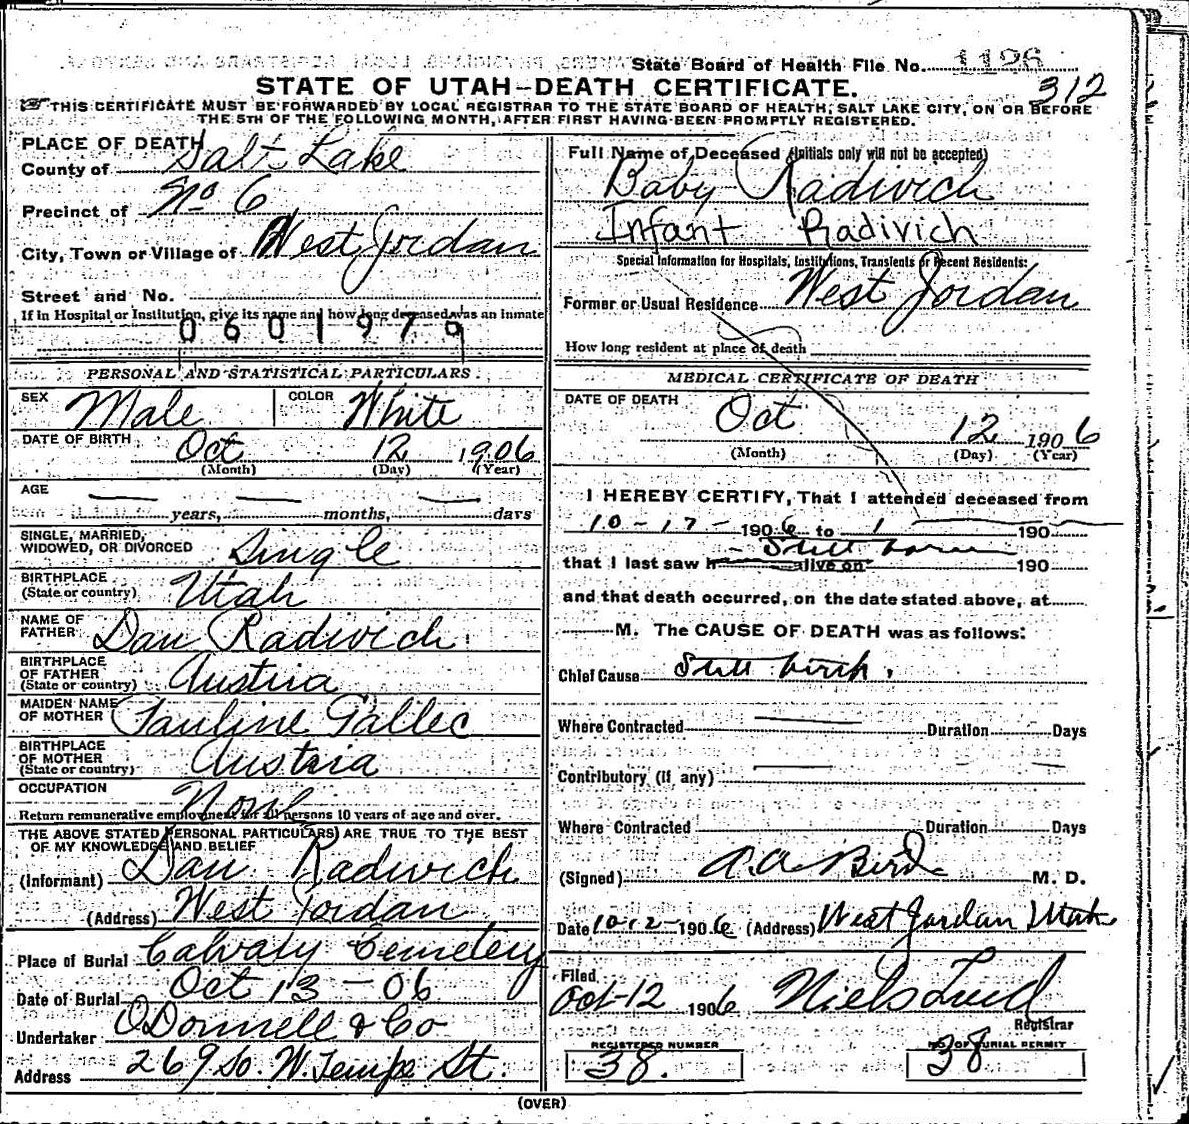 State Board of Health File No. 1196
312
STATE OF UTAH-DEATH CERTIFICATE.
THIS CERTIFICATE MUST BE FORWARDED BY LOCAL REGISTRAR TO THE STATE BOARD OF HEALTH, SALT LAKE CITY, ON OR BEFORE
THE 5TH OF THE FOLLOWING MONTH, AFTER FIRST HAVING BEEN PROMPTLY REGISTERED.
PLACE OF DEATH
County of Salt Lake
Precinct of No 6
City, Town or Village of West Jordan
Street and No.
If in Hospital or Institution, give its name and how long deceased was an inmate
0601979
PERSONAL AND STATISTICAL PARTICULARS
SEX Male COLOR White
DATE OF BIRTH Oct 12 1906
(Month) (Day) (Year)
AGE
years, months, days
SINGLE, MARRIED,
WIDOWED, OR DIVORCED Single
BIRTHPLACE
(State or country) Utah
NAME OF
FATHER Dan Radivich
BIRTHPLACE
OF FATHER
(State or country) Austria
MAIDEN NAME
OF MOTHER Pauline Gallec
BIRTHPLACE
OF MOTHER
(State or country) Austria
OCCUPATION None
Return remunerative employment for all persons 10 years of age and over.
THE ABOVE STATED PERSONAL PARTICULARS ARE TRUE TO THE BEST
OF MY KNOWLEDGE AND BELIEF
(Informant) Dan Radivich
(Address) West Jordan
Place of Burial Calvary Cemetery
Date of Burial Oct 13 - 06
Undertaker O'Donnell & Co
Address 269 So. W. Temple St.
Full Name of Deceased (Initials only will not be accepted)
Baby Radivich
Infant Radivich
Special Information for Hospitals, Institutions, Transients or Recent Residents:
Former or Usual Residence West Jordan
How long resident at place of death
MEDICAL CERTIFICATE OF DEATH
DATE OF DEATH
Oct 12 1906
(Month) (Day) (Year)
I HEREBY CERTIFY, That I attended deceased from
10-17- 1906 to 190
Still born
that I last saw h alive on 190
and that death occurred, on the date stated above, at
M. The CAUSE OF DEATH was as follows:
Chief Cause Still birth.
Where Contracted Duration Days
Contributory (if any)
Where Contracted Duration Days
(Signed) A.A. Bird M. D.
Date 10-12-1906 (Address) West Jordan Utah
Filed
Oct-12 1906 Niels Lind
Registrar
REGISTERED NUMBER
38.
NO. OF BURIAL PERMIT
38
(OVER)